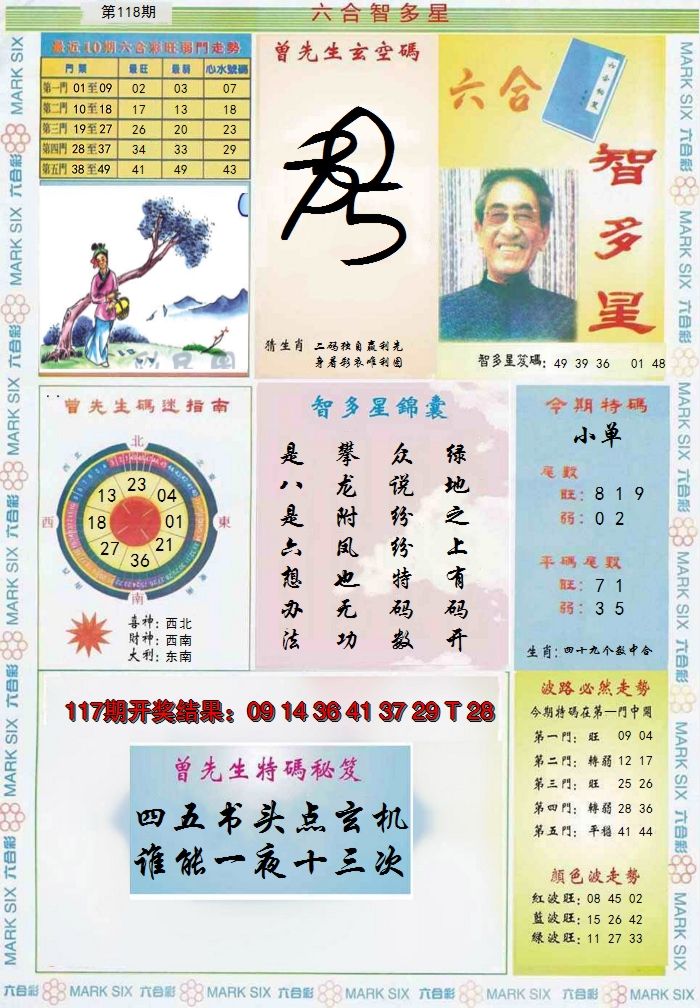 第118期
六合智多星
最近10期六合彩旺弱門走勢
門票 最旺 最弱 心水號碼
第一門 01至09 02 03 07
第二門 10至18 17 13 18
第三門 19至27 26 20 23
第四門 28至37 34 33 29
第五門 38至49 41 49 43
曾先生玄空碼
猜生肖 二码独自赢利先
身着彩衣唯利图
六合
六合秘笈
智多星
智多星笈碼: 49 39 36 01 48
曾先生碼迷指南
北
西北
东北
西
東
西南
东南
南
13 23 04
18 01
27 36 21
喜神: 西北
财神: 西南
大利: 东南
智多星錦囊
绿地之上有码开
众说纷纷特码数
攀龙附凤也无功
是八是六想办法
今期特碼
小单
尾數
旺: 8 1 9
弱: 0 2
平碼尾數
旺: 7 1
弱: 3 5
生肖: 四十九个数中合
117期开奖结果: 09 14 36 41 37 29 T 28
曾先生特碼秘笈
四五书头点玄机
谁能一夜十三次
波路必然走勢
今期特碼在第一門中開
第一門: 旺 09 04
第二門: 轉弱 12 17
第三門: 旺 25 26
第四門: 轉弱 28 36
第五門: 平穩 41 44
顏色波走勢
红波旺: 08 45 02
藍波旺: 15 26 42
绿波旺: 11 27 33
MARK SIX 六合彩